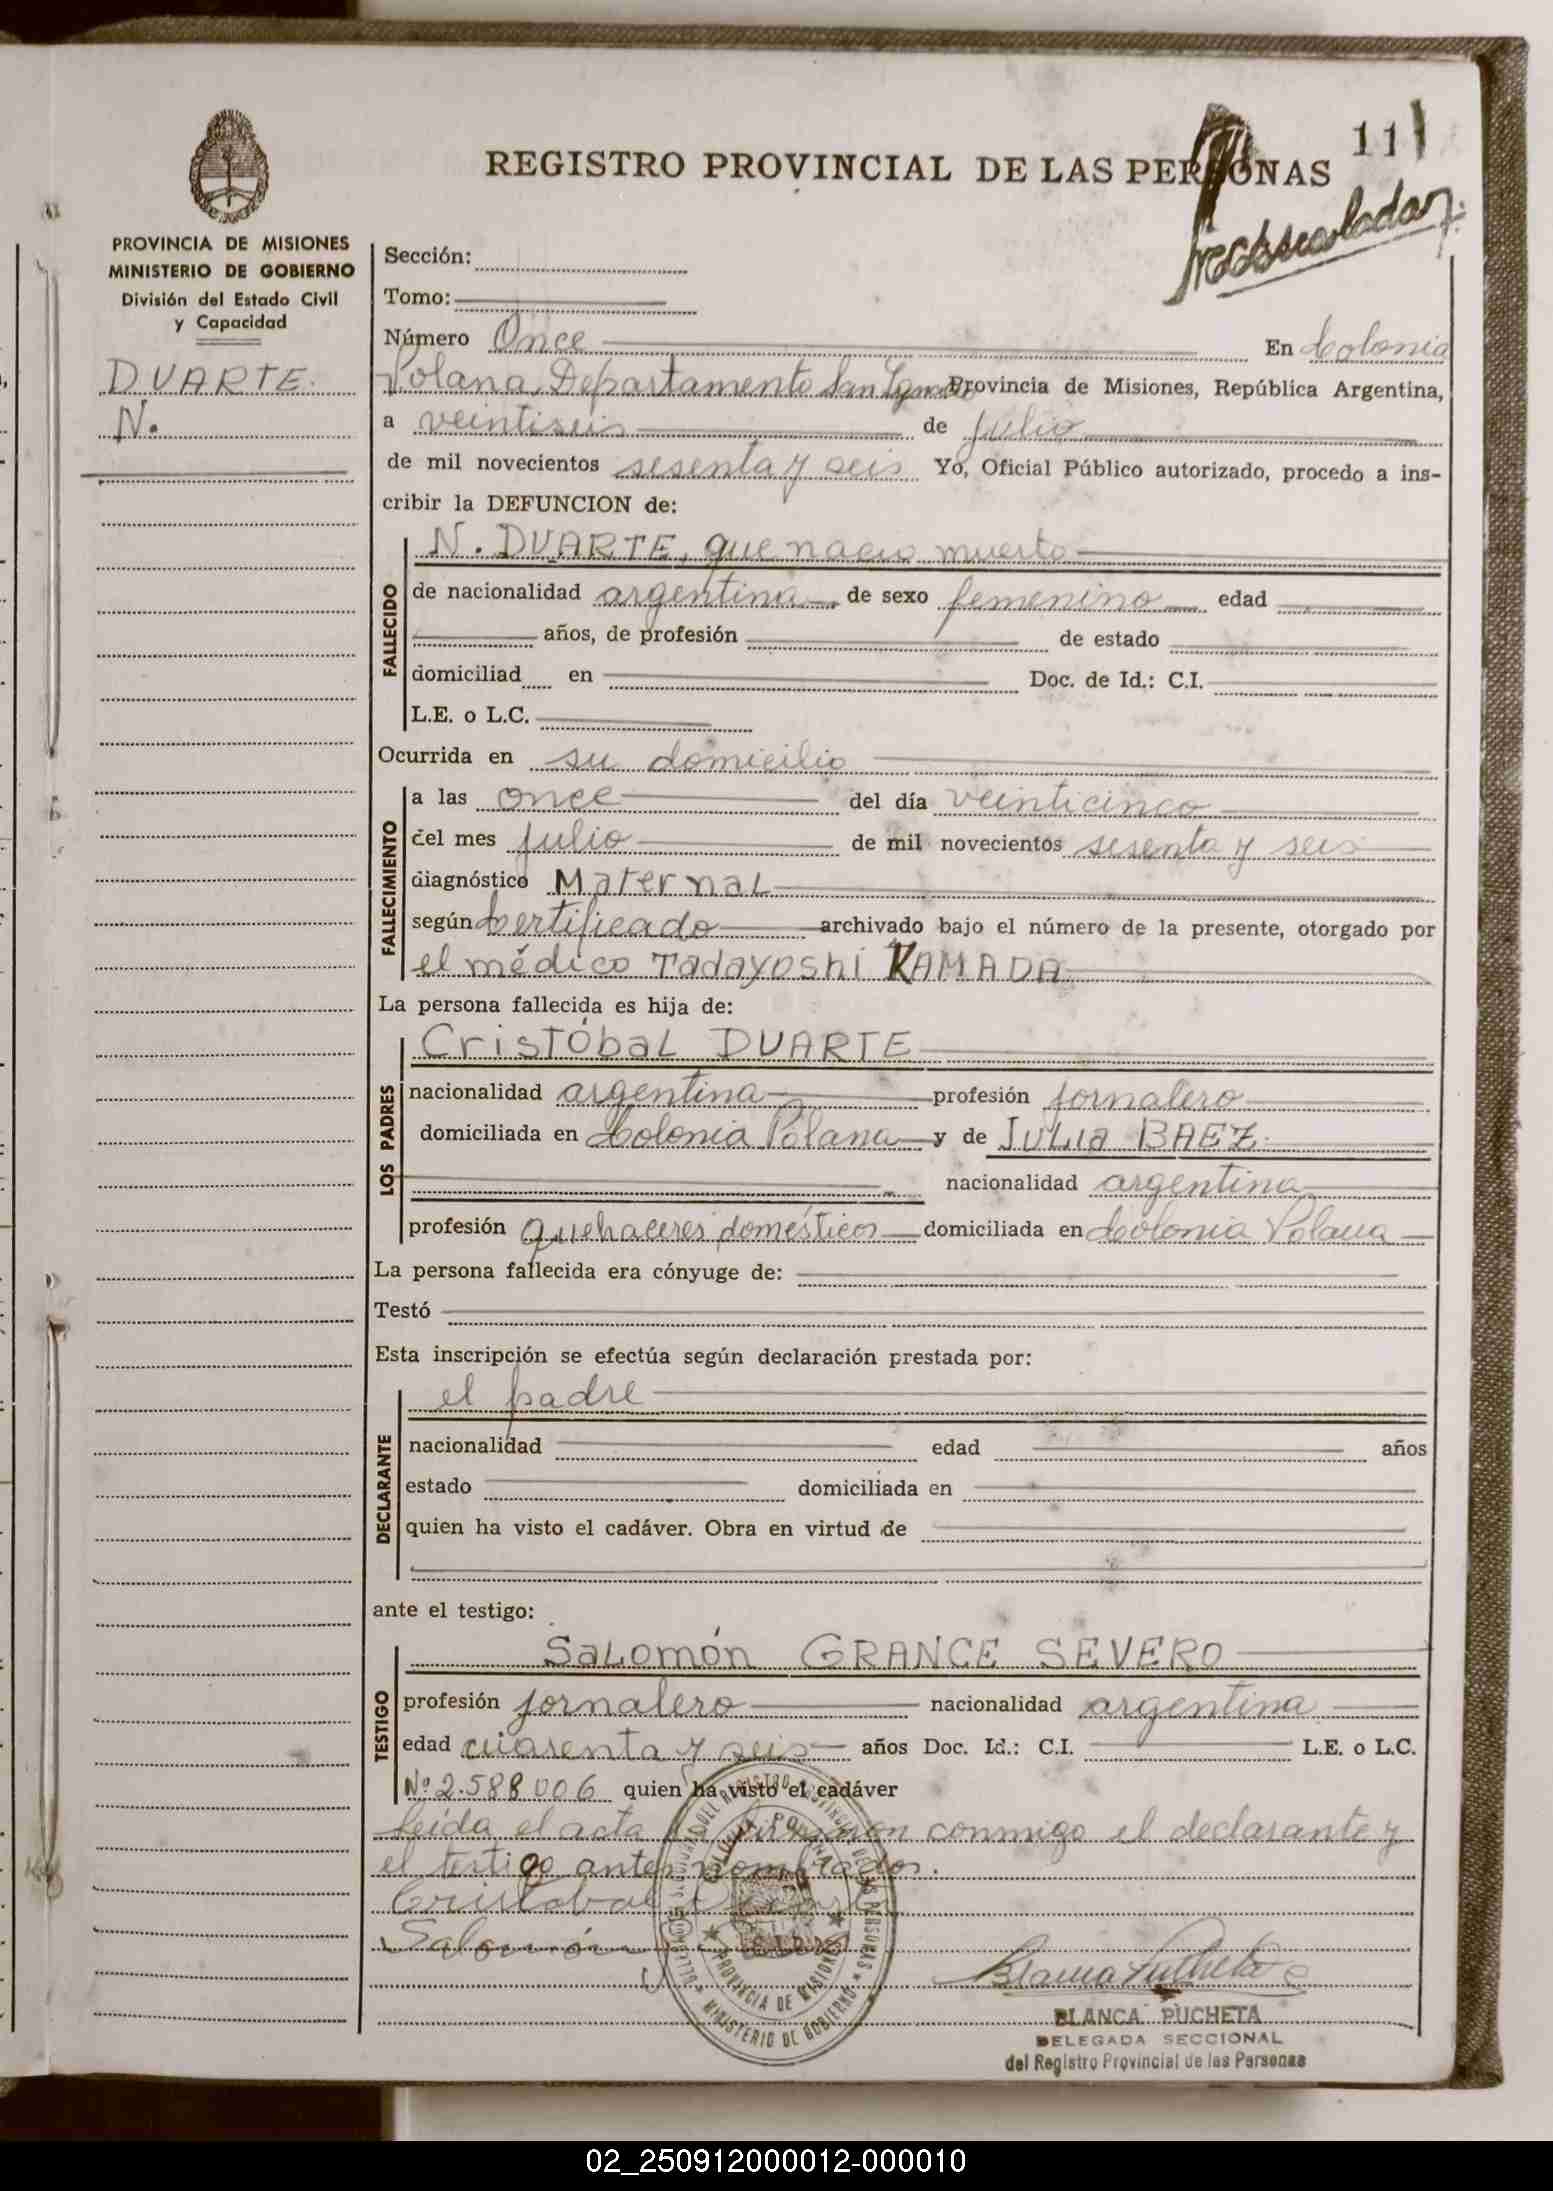 REGISTRO PROVINCIAL DE LAS PERSONAS
11
PROVINCIA DE MISIONES
MINISTERIO DE GOBIERNO
División del Estado Civil
y Capacidad
DUARTE.
N.
Sección:
Tomo:
Número Once En Colonia
Polana, Departamento San Ignacio Provincia de Misiones, República Argentina,
a veintiseis de julio
de mil novecientos sesenta y seis Yo, Oficial Público autorizado, procedo a ins-
cribir la DEFUNCION de:
FALLECIDO
N. DUARTE, que nacio muerto
de nacionalidad argentina de sexo femenino edad
años, de profesión de estado
domiciliad en Doc. de Id.: C.I.
L.E. o L.C.
Ocurrida en su domicilio
FALLECIMIENTO
a las once del día veinticinco
del mes julio de mil novecientos sesenta y seis
diagnóstico Maternal
según Certificado archivado bajo el número de la presente, otorgado por
el médico Tadayoshi KAMADA
La persona fallecida es hija de:
LOS PADRES
Cristóbal DUARTE
nacionalidad argentina profesión jornalero
domiciliada en Colonia Polana y de JULIA BAEZ
nacionalidad argentina
profesión Quehaceres domésticos domiciliada en Colonia Polana
La persona fallecida era cónyuge de:
Testó
Esta inscripción se efectúa según declaración prestada por:
DECLARANTE
el padre
nacionalidad edad años
estado domiciliada en
quien ha visto el cadáver. Obra en virtud de
ante el testigo:
TESTIGO
Salomón GRANCE SEVERO
profesión jornalero nacionalidad argentina
edad cuarenta y seis años Doc. Id.: C.I. L.E. o L.C.
Nº 2.588006 quien ha visto el cadáver
Leida el acta la firmaron conmigo el declarante y
el testigo antes nombrados.
Cristobal Duarte
Salomón
Blanca Pucheta
BLANCA PUCHETA
DELEGADA SECCIONAL
del Registro Provincial de las Personas
COLONIA POLANA
PROVINCIA DE MISIONES
MINISTERIO DE GOBIERNO
02_250912000012-000010